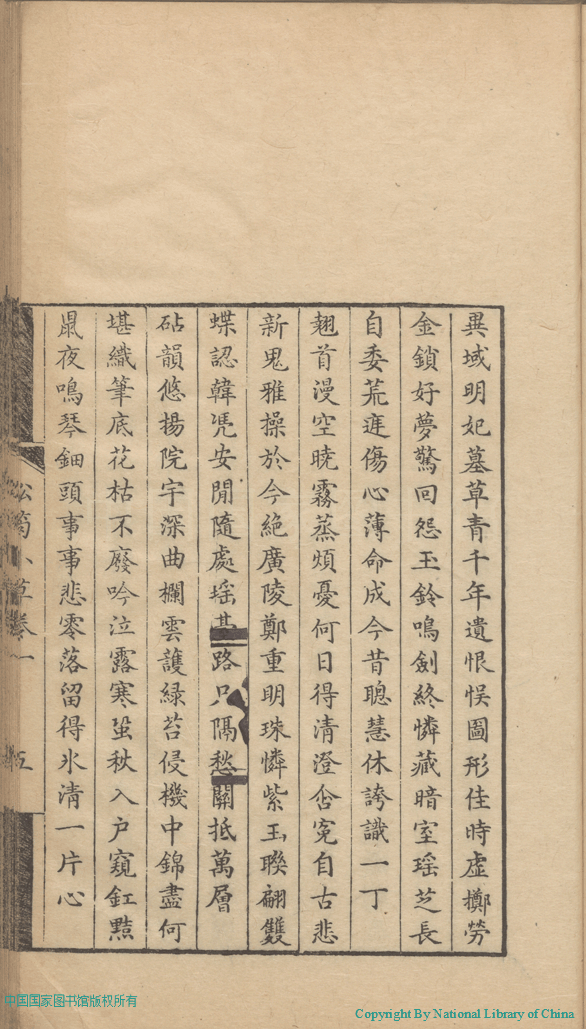 異域明妃墓草青千年遺恨悞圖形佳時虛擲勞
金鎖好夢驚回怨玉鈴鳴劍終憐藏暗室瑶芝長
自委荒逕傷心薄命成今昔聰慧休誇識一丁
翹首漫空曉霧蒸煩憂何日得清澄含冤自古悲
新鬼雅操於今絶廣陵鄭重明珠憐紫玉聯翩雙
蝶認韓凭安閒隨處瑶路只隔愁關抵萬層
砧韻悠揚院宇深曲欄雲護緑苔侵機中錦盡何
堪織筆底花枯不廢吟泣露寒蛩秋入户窺釭黠
鼠夜鳴琴鈿頭事事悲零落留得氷清一片心
松菊小草卷一
五
中国国家图书馆版权所有
Copyright By National Library of China